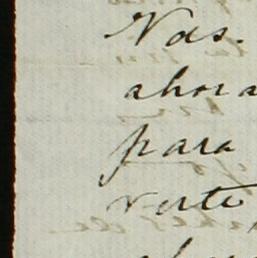 Nas.
ahora
para
verte